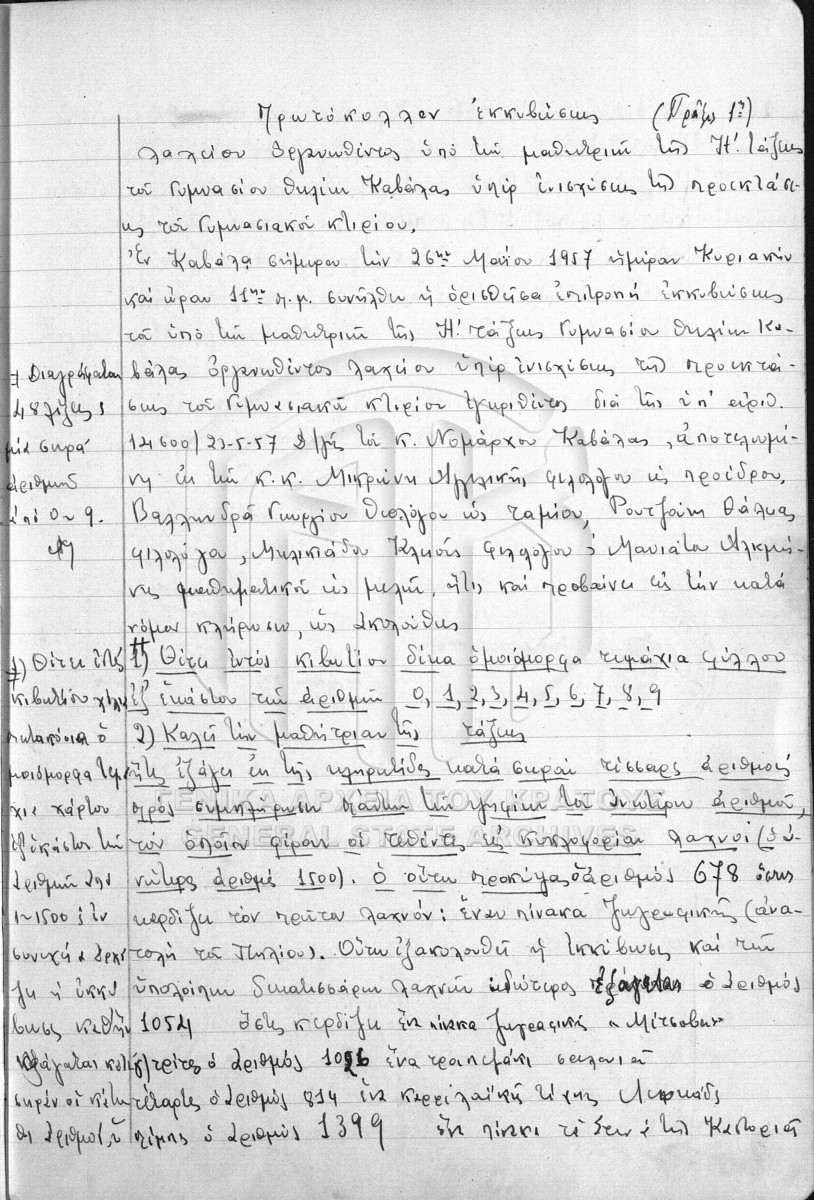 Πρωτόκολλον ἐκκυβεύσεως (Πρᾶξις 1η)
λαχείου ὀργανωθέντος ὑπὸ τῶν μαθητριῶν τῆς Η! τάξεως
τοῦ Γυμνασίου θηλέων Καβάλας ὑπὲρ ἐνισχύσεως τῆς προεκτάσε-
ως τοῦ Γυμνασιακοῦ κτιρίου.
Ἐν Καβάλᾳ σήμερον τὴν 26ην Μαΐου 1957 ἡμέραν Κυριακὴν
καὶ ὥραν 11ην π.μ. συνῆλθεν ἡ ὁρισθεῖσα ἐπιτροπὴ ἐκκυβεύσεως
τοῦ ὑπὸ τῶν μαθητριῶν τῆς Η! τάξεως Γυμνασίου θηλέων Κα-
βάλας ὀργανωθέντος λαχείου ὑπὲρ ἐνισχύσεως τῆς προεκτά-
σεως τοῦ Γυμνασιακοῦ κτιρίου ἐγκριθέντος διὰ τῆς ὑπ' ἀριθ.
12600/23-5-57 Δ/γῆς τοῦ κ. Νομάρχου Καβάλας, ἀποτελουμέ-
νη ἐκ τῶν κ.κ. Μικρώνη Ἀγγελικῆς φιλολόγου ὡς προέδρου,
Γεωργίου θεολόγου ὡς ταμίου, Ρουτζάνη Θάλειας
φιλολόγου, Μηλτιάδου φιλολόγου Μανιάτου Ἀλκμή-
νης μαθηματικοῦ ὡς μελῶν, ἥτις καὶ προβαίνει εἰς τὴν κατὰ
νόμον κλήρωσιν, ὡς ἀκολούθως
1) Θέτει ἐντὸς κιβωτίου δέκα ὁμοιόμορφα τεμάχια φύλλου
ἐξ ἑκάστου τῶν ἀριθμῶν 0, 1, 2, 3, 4, 5, 6, 7, 8, 9
2) Καλεῖ τὴν μαθήτριαν τῆς τάξεως
ἥτις ἐξάγει ἐκ τῆς κληρωτίδος κατὰ σειρὰν τέσσαρας ἀριθμοὺς
πρὸς συμπλήρωσιν τῶν ψηφίων τοῦ ἀριθμοῦ,
τὸν ὁποῖον φέρουν οἱ τεθέντες εἰς κυκλοφορίαν λαχνοὶ (ἀ-
νώτερος ἀριθμὸς 1500). Ὁ οὕτω προκύψας ἀριθμὸς 678 ὅστις
κερδίζει τὸν πρῶτον λαχνόν: Ἕναν πίνακα ζωγραφικῆς (ἀνα-
τολὴ τοῦ Πηλίου). Οὕτω ἐξακολουθεῖ ἡ ἐκκύβευσις καὶ τῶν
ὑπολοίπων δεκατεσσάρων λαχνῶν δεύτερος ἐξάγεται ὁ ἀριθμὸς
1054 ὅστις κερδίζει ἕνα πίνακα ζωγραφικῆς «Μέτσοβον»
τρίτος ὁ ἀριθμὸς ἕνα τραπεζάκι σαλονιοῦ
τέταρτος ὁ ἀριθμὸς 814 ἕνα
πέμπτος ὁ ἀριθμὸς 1399 ἕνα πίνακα τῆς Καστοριᾶς
Διαγράφονται
48 λέξεις
μία σειρὰ
ἀριθμῶν
ἀπὸ 0 ως 9.
1) Θέτει ἐντὸς
κιβωτίου χίλια
πεντακόσια ὁ-
μοιόμορφα τεμά-
χια χάρτου
ἐξ ἑκάστου τῶν
ἀριθμῶν ἀπὸ
1-1500 ἐν
συνεχείᾳ ἀρχί-
ζει ἡ ἐκκύ-
βευσις καθ' ἣν
ἐξάγονται κατὰ
σειρὰν οἱ κάτω-
θι ἀριθμοί,